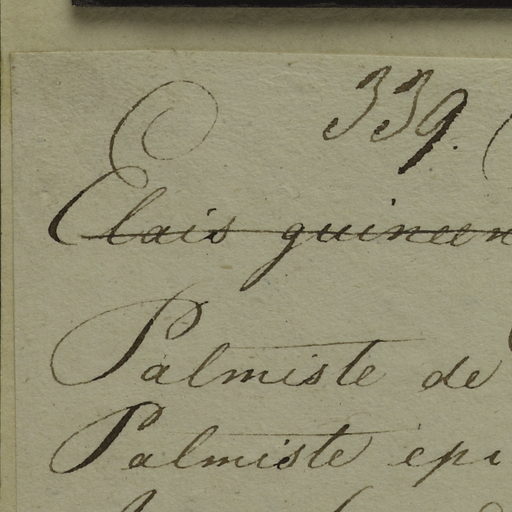 339.
Elais guineen
Palmiste de
Palmiste epi